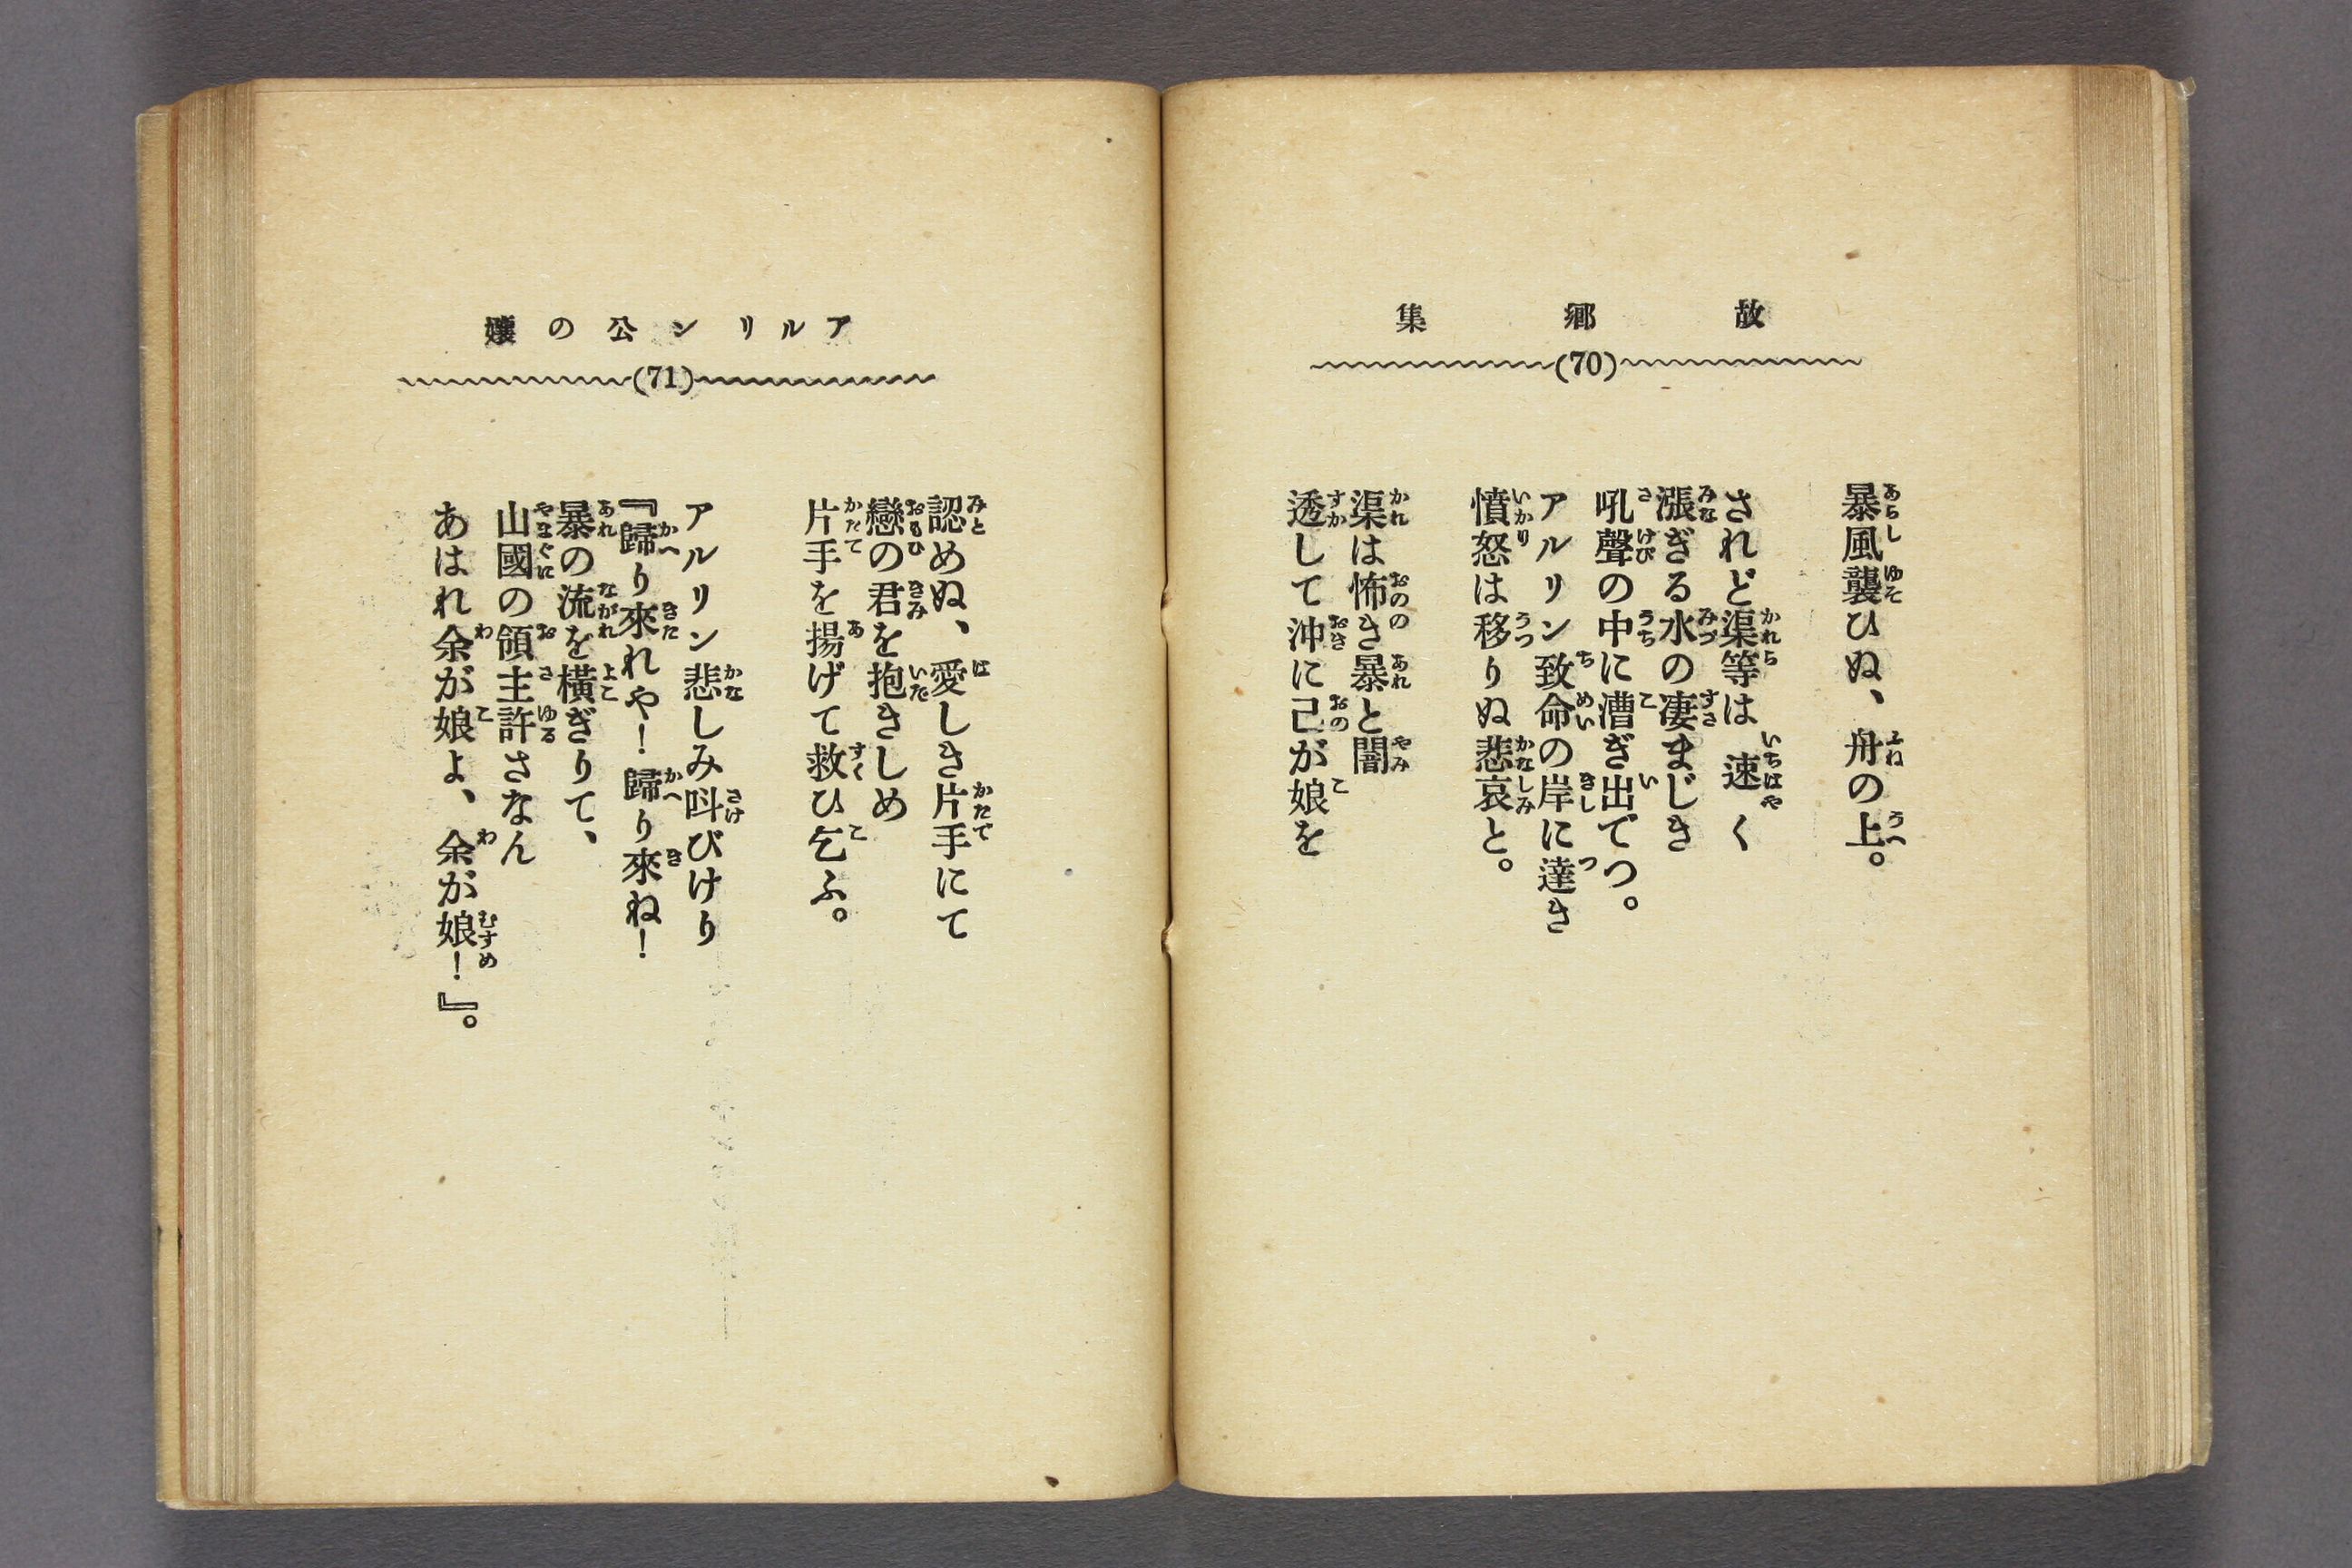 故鄕集
(70)
暴風襲ひぬ、舟の上。
されど渠等は速く
漲ぎる水の凄まじき
吼聲の中に漕ぎ出でつ。
アルリン致命の岸に達き
憤怒は移りぬ悲哀と。
渠は怖き暴と闇
透して沖に己が娘を
アルリン公の孃
(71)
認めぬ、愛しき片手にて
戀の君を抱きしめ
片手を揚げて救ひ乞ふ。
アルリン悲しみ呌びけり
『歸り來れや！歸り來ね！
暴の流を橫ぎりて、
山國の領主許さなん
あはれ余が娘よ、余が娘！』。